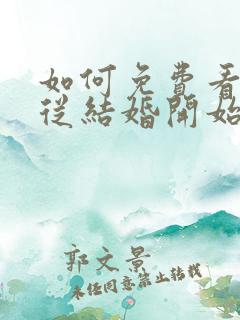 如何免費看
從結婚開始
郭文景
未經同意禁止轉載